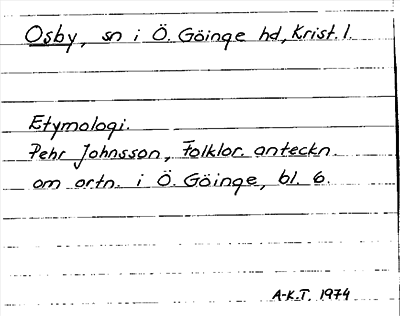 Osby, sn i Ö. Göinge hd, Krist. l.
Etymologi.
Pehr Johnsson, Folklor. anteckn.
om ortn. i Ö. Göinge, bl. 6.
A-K.T. 1974